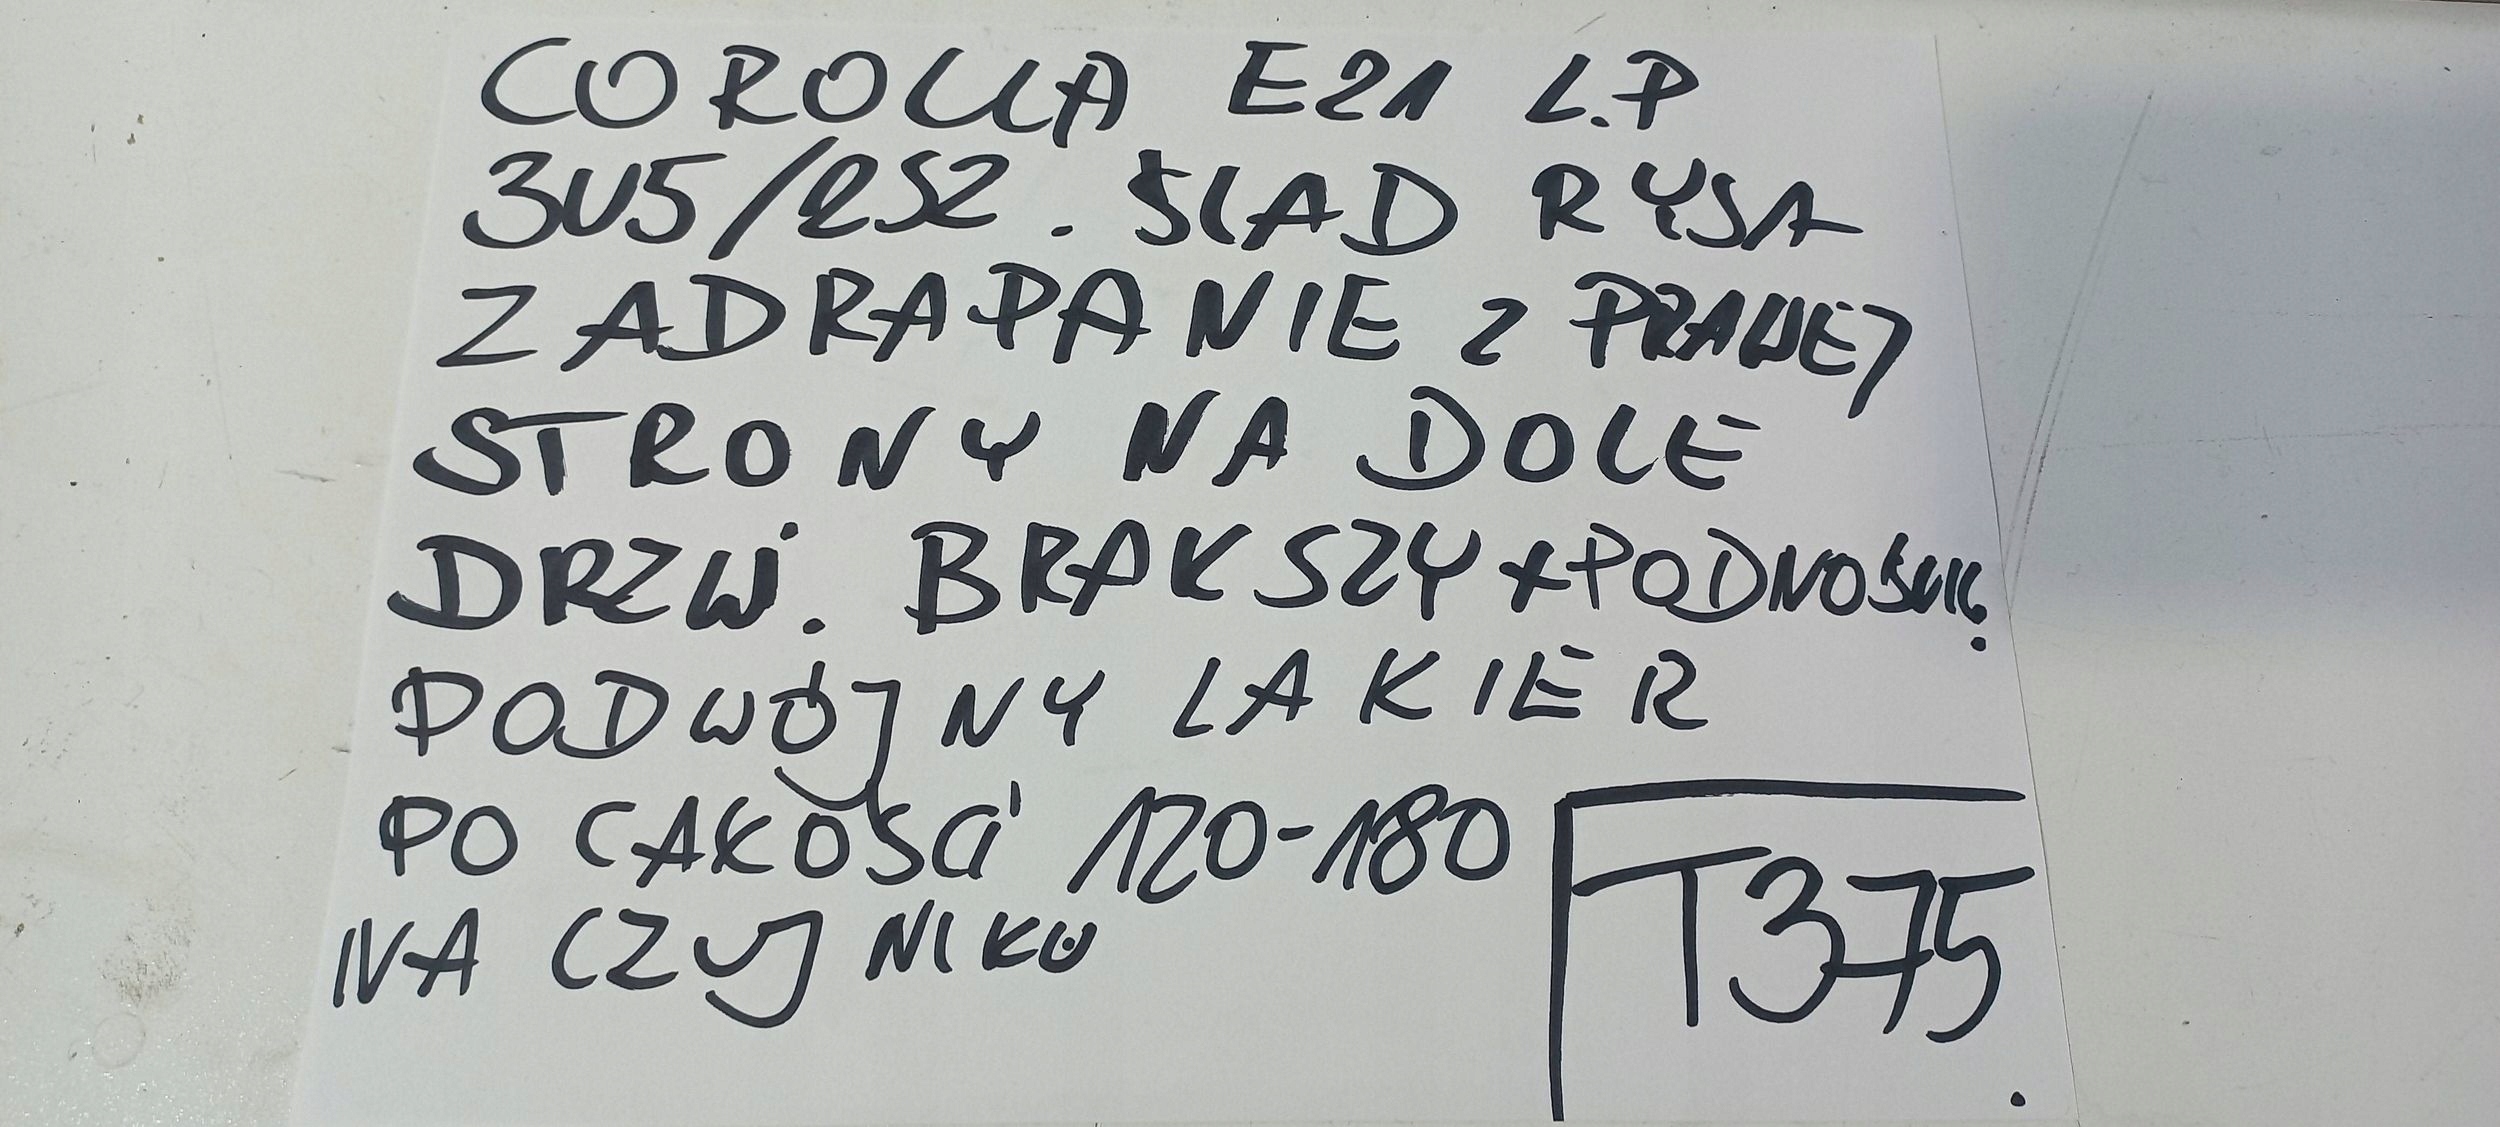 COROLLA E21 L.P
3U5/252. ŚLAD RYSA
ZADRAPANIE Z PRAWEJ
STRONY NA DOLE
DRZWI. BRAK SZY+PODNOŚNIK.
PODWÓJNY LAKIER
PO CAŁOŚCI 120-180
NA CZUJNIKU
T375.